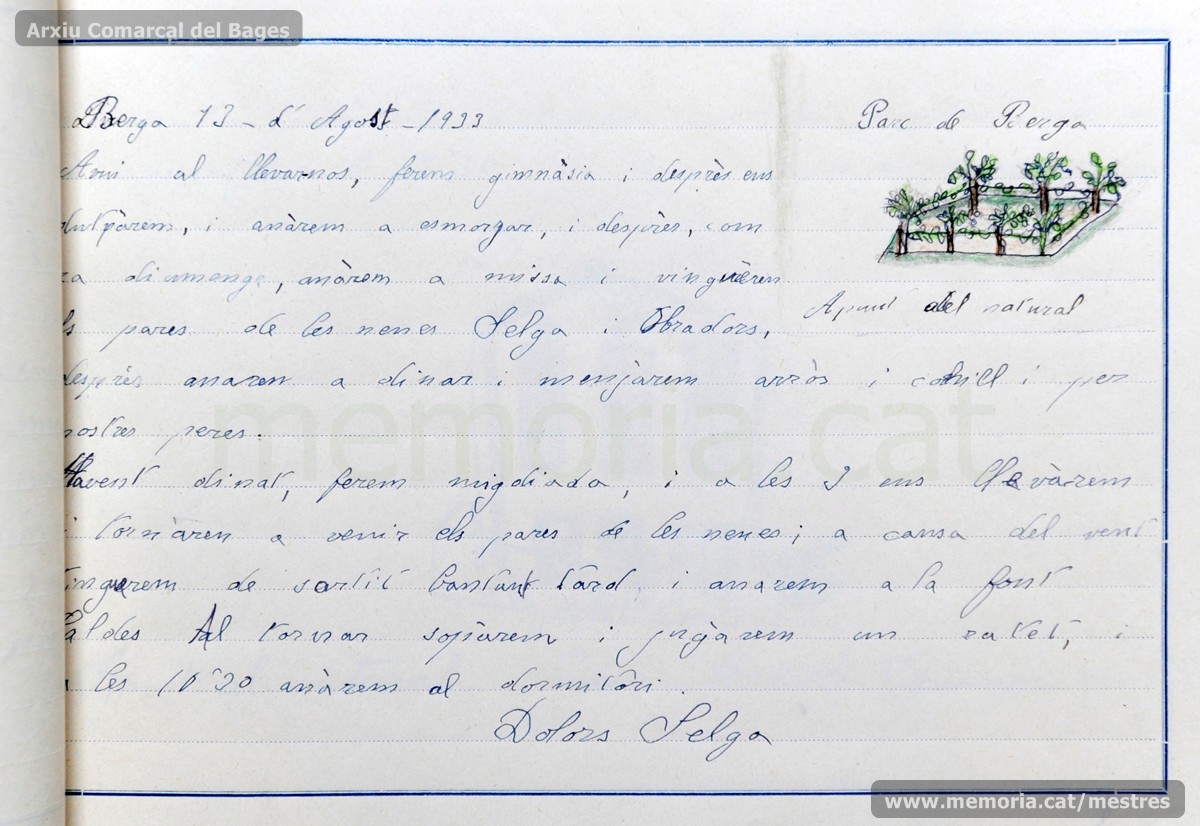 Arxiu Comarcal del Bages
Berga 13 - d' Agost - 1933
Parc de Berga
Avui al llevarnos, ferem gimnàsia i desprès ens
dutxàrem, i anàrem a esmorzar, i desprès, com
ra diumenge, anàrem a missa i vinguèren
ls pares de les nenes Selga i Obradors,
Apunt del natural
desprès anarem a dinar i menjàrem arròs i conill i per
nostres peres.
Havent dinat, ferem migdiada, i a les 3 ens llevàrem
i tornàren a venir els pares de les nenes; a causa del vent
tinguerem de sortit bantant tard, i anarem a la font
Caldes Al tornar sopàrem i jugàrem un ratet, i
a les 10'30 anàrem al dormitòri.
Dolors Selga
memoria.cat
www.memoria.cat/mestres